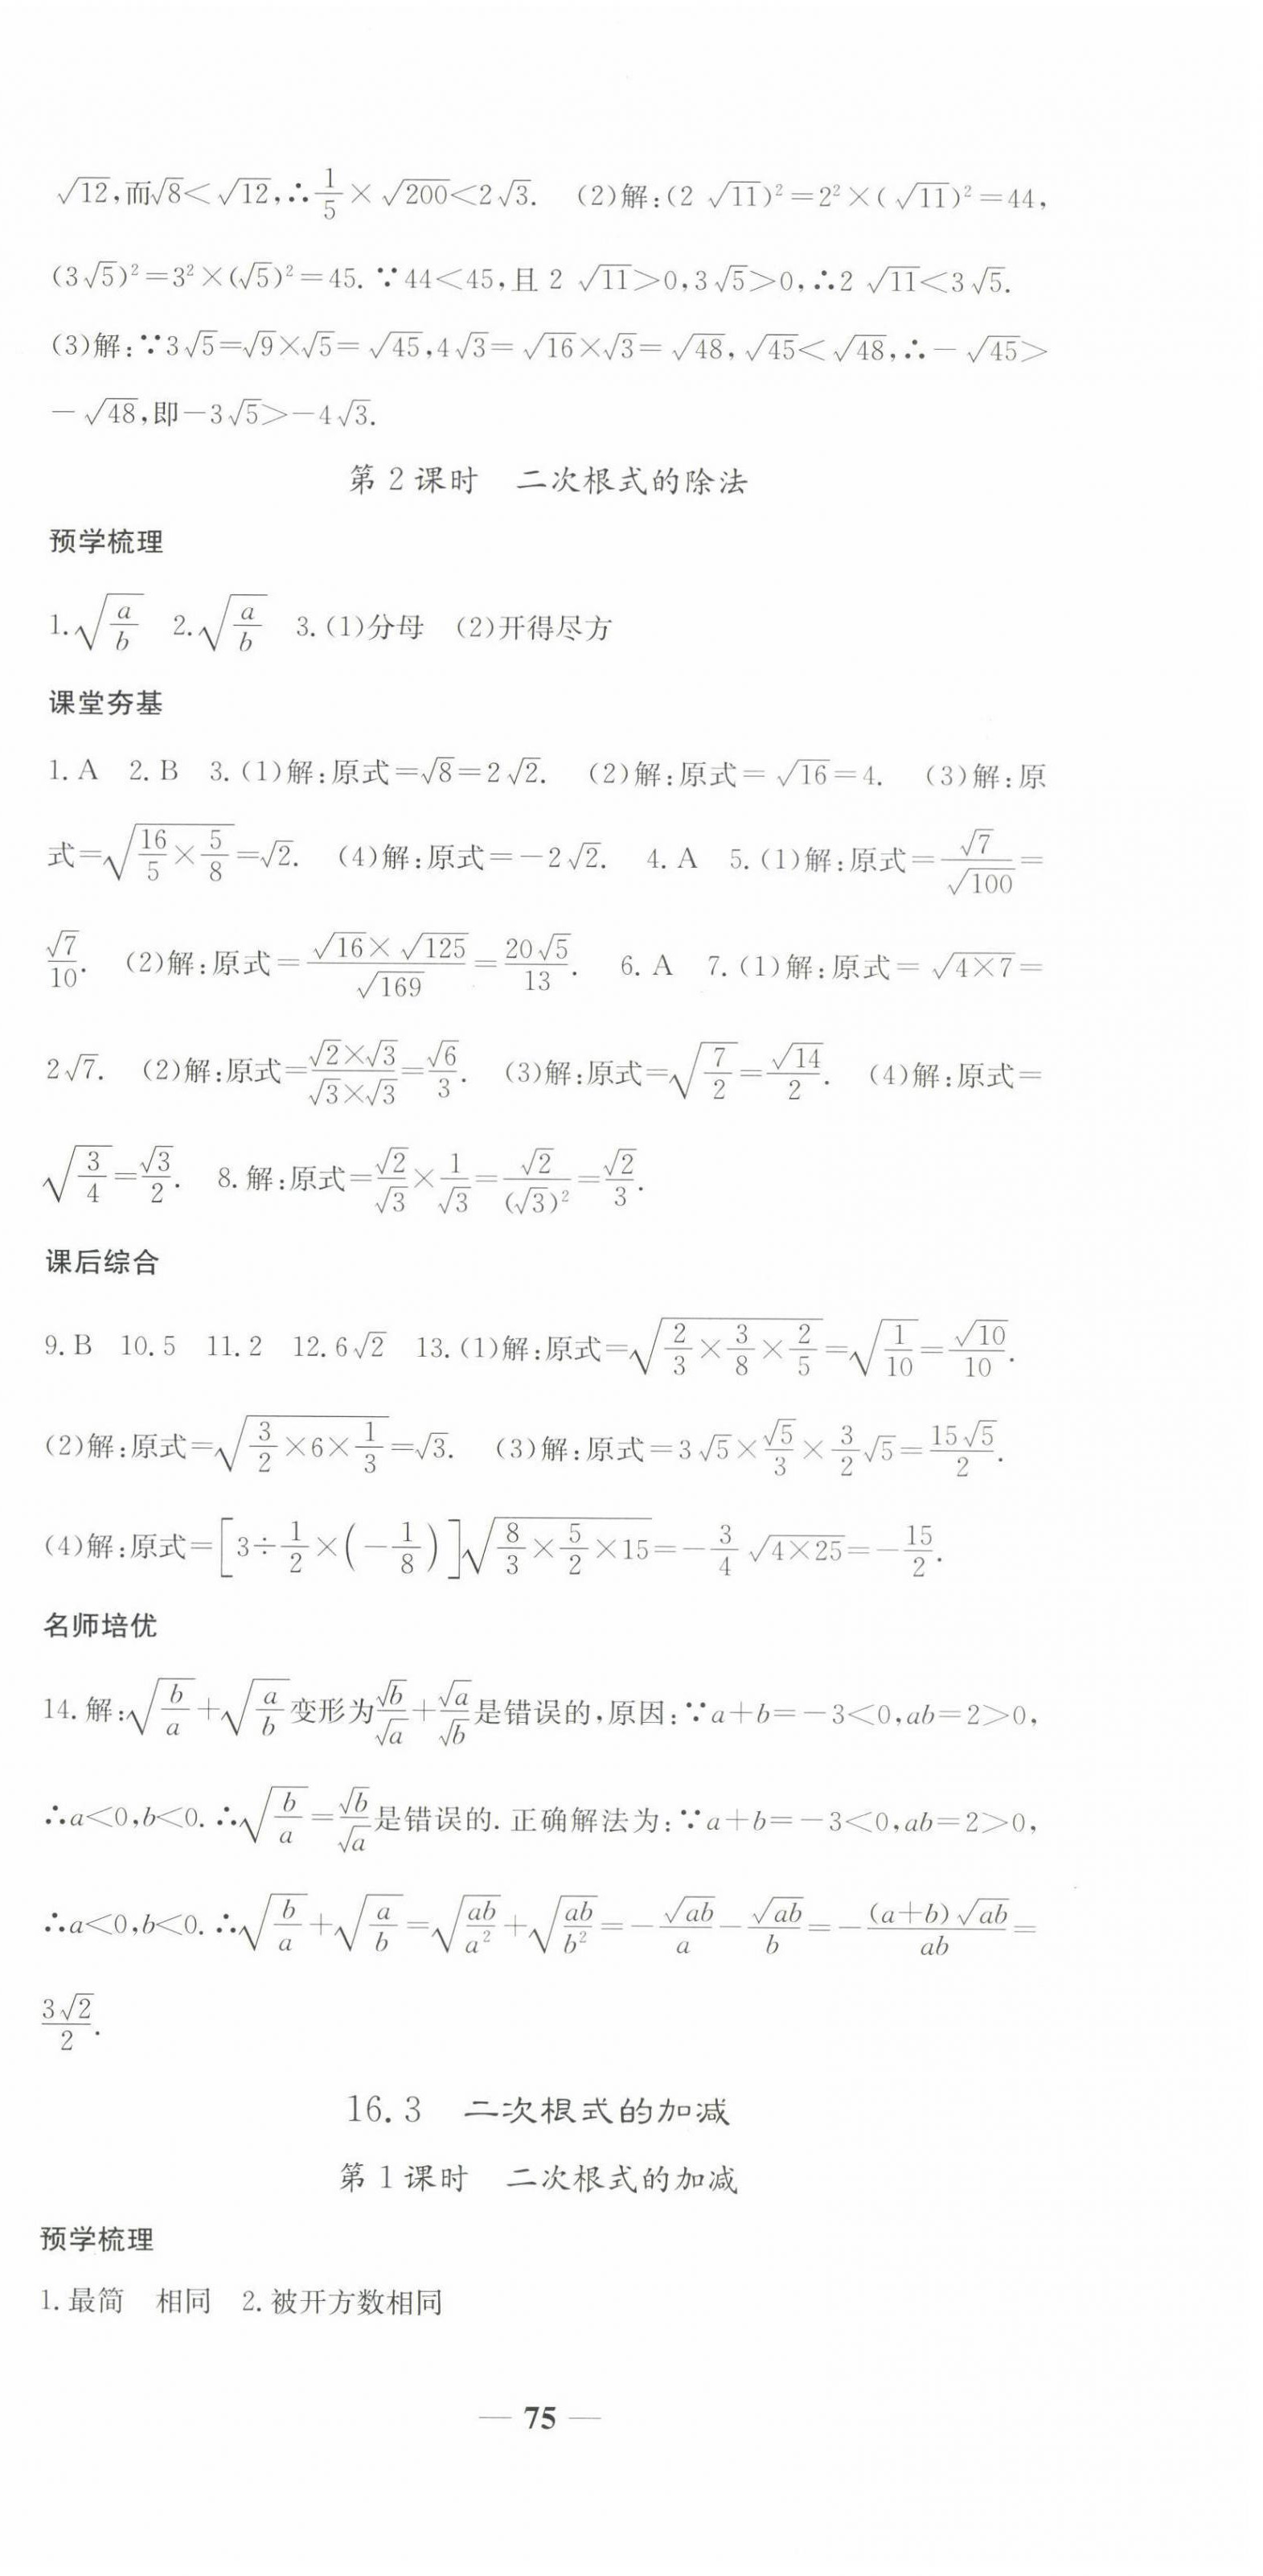 √12,而√8<√12,∴1/5×√200<2√3. (2)解:(2√11)²=2²×(√11)²=44,
(3√5)²=3²×(√5)²=45.∵44<45,且2√11>0,3√5>0,∴2√11<3√5.
(3)解:∵3√5=√9×√5=√45,4√3=√16×√3=√48,√45<√48,∴-√45>
-√48,即-3√5>-4√3.
第2课时 二次根式的除法
预学梳理
1.√(a/b) 2.√(a/b) 3.(1)分母 (2)开得尽方
课堂夯基
1.A 2.B 3.(1)解:原式=√8=2√2. (2)解:原式=√16=4. (3)解:原
式=√(16/5×5/8)=√2. (4)解:原式=-2√2. 4.A 5.(1)解:原式=√7/√100=
√7/10. (2)解:原式=(√16×√125)/√169=20√5/13. 6.A 7.(1)解:原式=√(4×7)=
2√7. (2)解:原式=(√2×√3)/(√3×√3)=√6/3. (3)解:原式=√(7/2)=√14/2. (4)解:原式=
√(3/4)=√3/2. 8.解:原式=√2/√3×1/√3=√2/(√3)²=√2/3.
课后综合
9.B 10.5 11.2 12.6√2 13.(1)解:原式=√(2/3×3/8×2/5)=√(1/10)=√10/10.
(2)解:原式=√(3/2×6×1/3)=√3. (3)解:原式=3√5×√5/3×3/2√5=15√5/2.
(4)解:原式=[3÷1/2×(-1/8)]√(8/3×5/2×15)=-3/4√(4×25)=-15/2.
名师培优
14.解:√(b/a)+√(a/b)变形为√b/√a+√a/√b是错误的,原因:∵a+b=-3<0,ab=2>0,
∴a<0,b<0.∴√(b/a)=√b/√a是错误的.正确解法为:∵a+b=-3<0,ab=2>0,
∴a<0,b<0.∴√(b/a)+√(a/b)=√(ab/a²)+√(ab/b²)=-√ab/a-√ab/b=-(a+b)√ab/ab=
3√2/2.
16.3 二次根式的加减
第1课时 二次根式的加减
预学梳理
1.最简 相同 2.被开方数相同
— 75 —